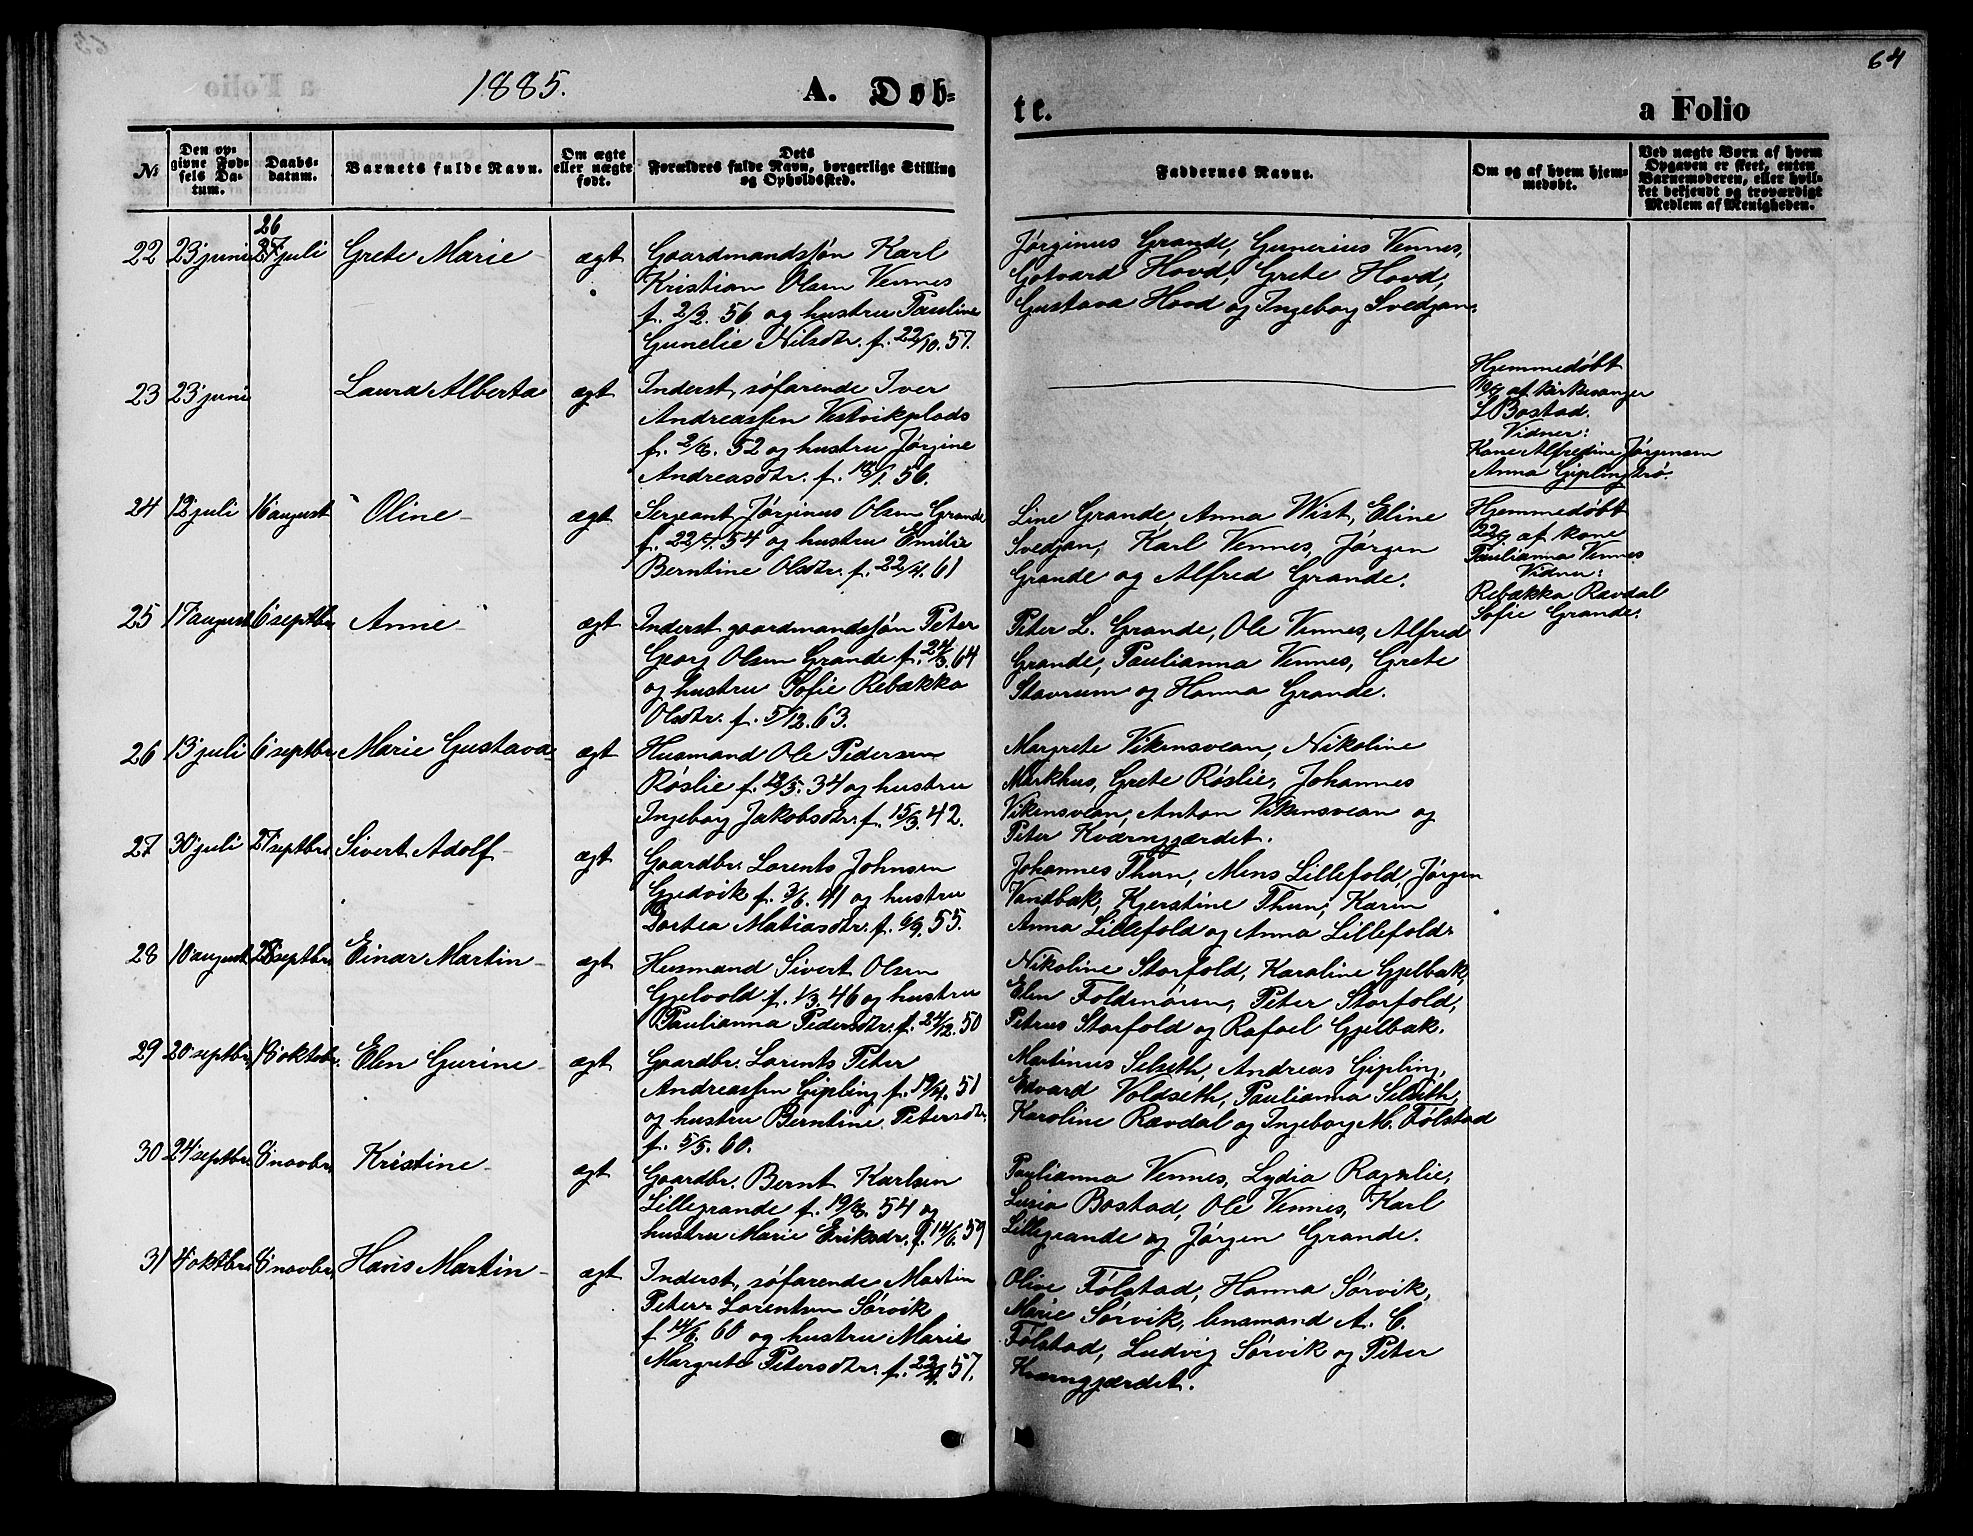 64
1885.
A. Døb=
te.
a Folio
№
Den op-
givne Fød-
sels Da-
tum.
Daabs-
datum.
Barnets fulde Navn.
Om ægte
eller uægte
født.
Dets
Forældres fulde Navn, borgerlige Stilling
og Opholdssted.
Faddernes Navne.
Om og af hvem hjem-
medøbt.
Ved uægte Børn af hvem
Opgaven er skeet, enten
Barnemoderen, eller hvil-
ket bekjendt og troværdigt
Medlem af Menigheden.
22 23' juni 26 juli Grete Marie ægt
Gaardmandssøn Karl
Kristian Olsen Vennes
f. 2/2. 56 og hustru Pauline
Gunelie Nilsdtr. f. 22/10. 57.
Jørginus Grande, Gunerius Vennes,
Gotvard Hovd, Grete Hovd,
Gustava Hovd og Ingeborg Svedjan.
23 23' juni Laura Alberta ægt
Inderst, søfarende Iver
Andreassen Vestvikplads
f. 2/8. 52 og hustru Jørgine
Andreasdtr. f. 18/1. 56.
Hjemmedøbt
af kirkesanger
L. Bostad.
Vidner:
Kone Alfredine Jørgensen
Anna Giplingtrø.
24 12' juli 16' august Oline ægt
Sergeant Jørginus Olsen Grande
f. 54 og hustru Emilie
Berntine Olsdtr. f. 22/4. 61
Line Grande, Anna Wist, Eline
Svedjan, Karl Vennes, Jørgen
Grande og Alfred Grande.
Hjemmedøbt
af kone
Paulianna Vennes
Vidner:
Rebækka Ravdal
Sofie Grande.
25 17' august 6' septbr. Anne ægt
Inderst gaardmandssøn Peter
Georg Olsen Grande f. 24/3. 64
og hustru Sofie Rebækka
Olsdtr. f. 5/12. 63.
Peter L. Grande, Ole Vennes, Alfred
Grande, Paulianna Vennes, Grete
Stavrum og Hanna Grande.
26 13' juli 6' septbr. Marie Gustava ægt
Husmand Ole Pedersen
Røslie f. 34 og hustru
Ingeborg Jakobsdtr. f. 15/3. 42.
Margrete Vikensvean, Nikoline
Markhus, Grete Røslie, Johannes
Vikensvean, Anton Vikensvean og
Peter Kværngjærdet.
27 30' juli 27' septbr. Sivert Adolf ægt
Gaardbr. Lorents Johnsen
Gjedvik f. 3/6. 41 og hustru
Dortea Matiasdtr. f. 55.
Johannes Thun, Mens Lillefold, Jørgen
Vandbæk, Kjerstine Thun, Karen
Anna Lillefold og Anna Lillefold.
28 10' august septbr. Einar Martin ægt
Husmand Sivert Olsen
Gjelvold f. 1/3. 46 og hustru
Paulianna Pedersdtr. f. 24/12. 50
Nikoline Storfold, Karoline Gjelbæk,
Elen Foldmoen, Peter Storfold,
Petrus Storfold og Rafael Gjelbæk.
29 20' septbr. 18' oktobr. Elen Gurine ægt
Gaardbr. Lorents Peter
Andreassen Gipling f. 19/4. 51
og hustru Berntine Petersdtr.
f. 5/5. 60.
Martinus Selseth, Andreas Gipling,
Edvard Voldseth, Paulianna Selseth,
Karoline Ravdal og Ingeborg M. Følstad
30 24' septbr. 8' novbr. Kristine ægt
Gaardbr. Bernt Karlsen
Lillegrande f. 19/8. 54 og
hustru Marie Eriksdr. f. 14/6. 59
Paulianna Vennes, Lydia Ramslie,
Lusia Bostad, Ole Vennes, Karl
Lillegrande og Jørgen Grande.
31 4' oktbr. 8' novbr. Hans Martin ægt
Inderst, søfarende Martin
Peter Lorentsen Sørvik
f. 14/6. 60 og hustru Marie
Margrete Petersdtr. f. 57.
Olive Følstad, Hanna Sørvik,
Marie Sørvik, lensmand A. C.
Følstad, Ludvig Sørvik og Peter
Kværngjærdet.